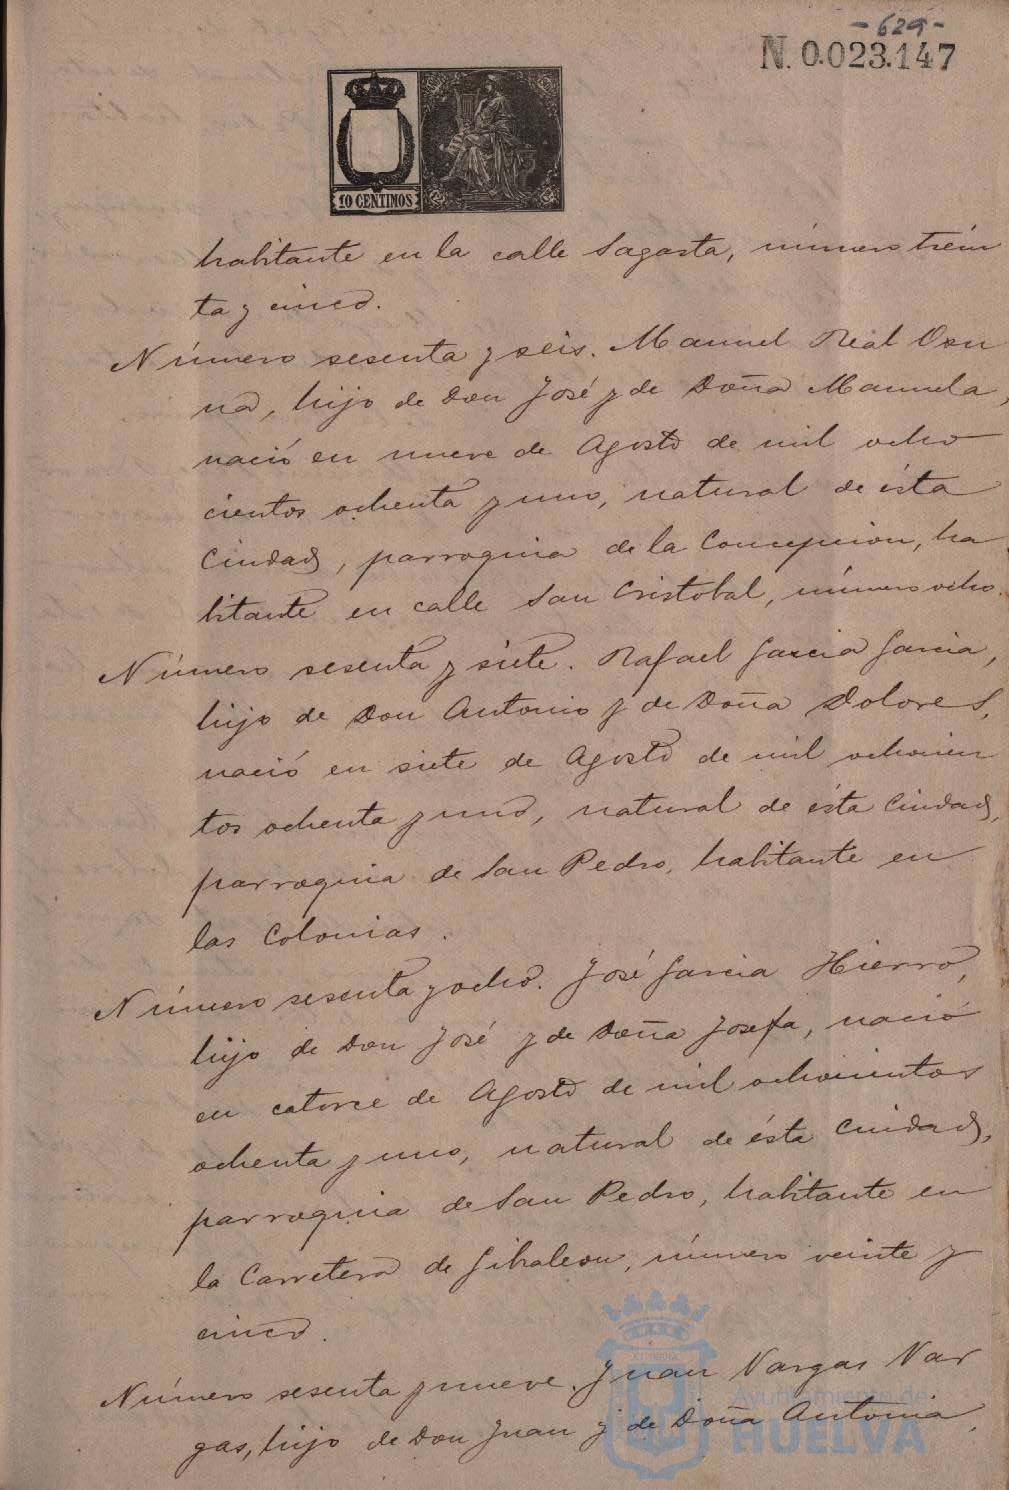 - 629 -
N. 0.023.147
10 CENTIMOS
habitante en la calle Sagasta, número trein
ta y cinco.
Número sesenta y seis. Manuel Real Osu
na, hijo de Don José y de Doña Manuela,
nació en nueve de Agosto de mil ocho
cientos ochenta y uno, natural de ésta
Ciudad, parroquia de la Concepcion, ha
bitante en calle San Cristobal, número ocho.
Número sesenta y siete. Rafael Garcia Garcia,
hijo de Don Antonio y de Doña Dolores,
nació en siete de Agosto de mil ochocien
tos ochenta y uno, natural de ésta Ciudad,
parroquia de San Pedro, habitante en
las Colonias.
Número sesenta y ocho. José Garcia Hierro,
hijo de Don José y de Doña Josefa, nació
en catorce de Agosto de mil ochocientos
ochenta y uno, natural de ésta Ciudad,
parroquia de San Pedro, habitante en
la Carretera de Gibraleon, número veinte y
cinco.
Número sesenta y nueve. Juan Vargas Var
gas, hijo de Don Juan y de Doña Antonia,
Ayuntamiento de
HUELVA